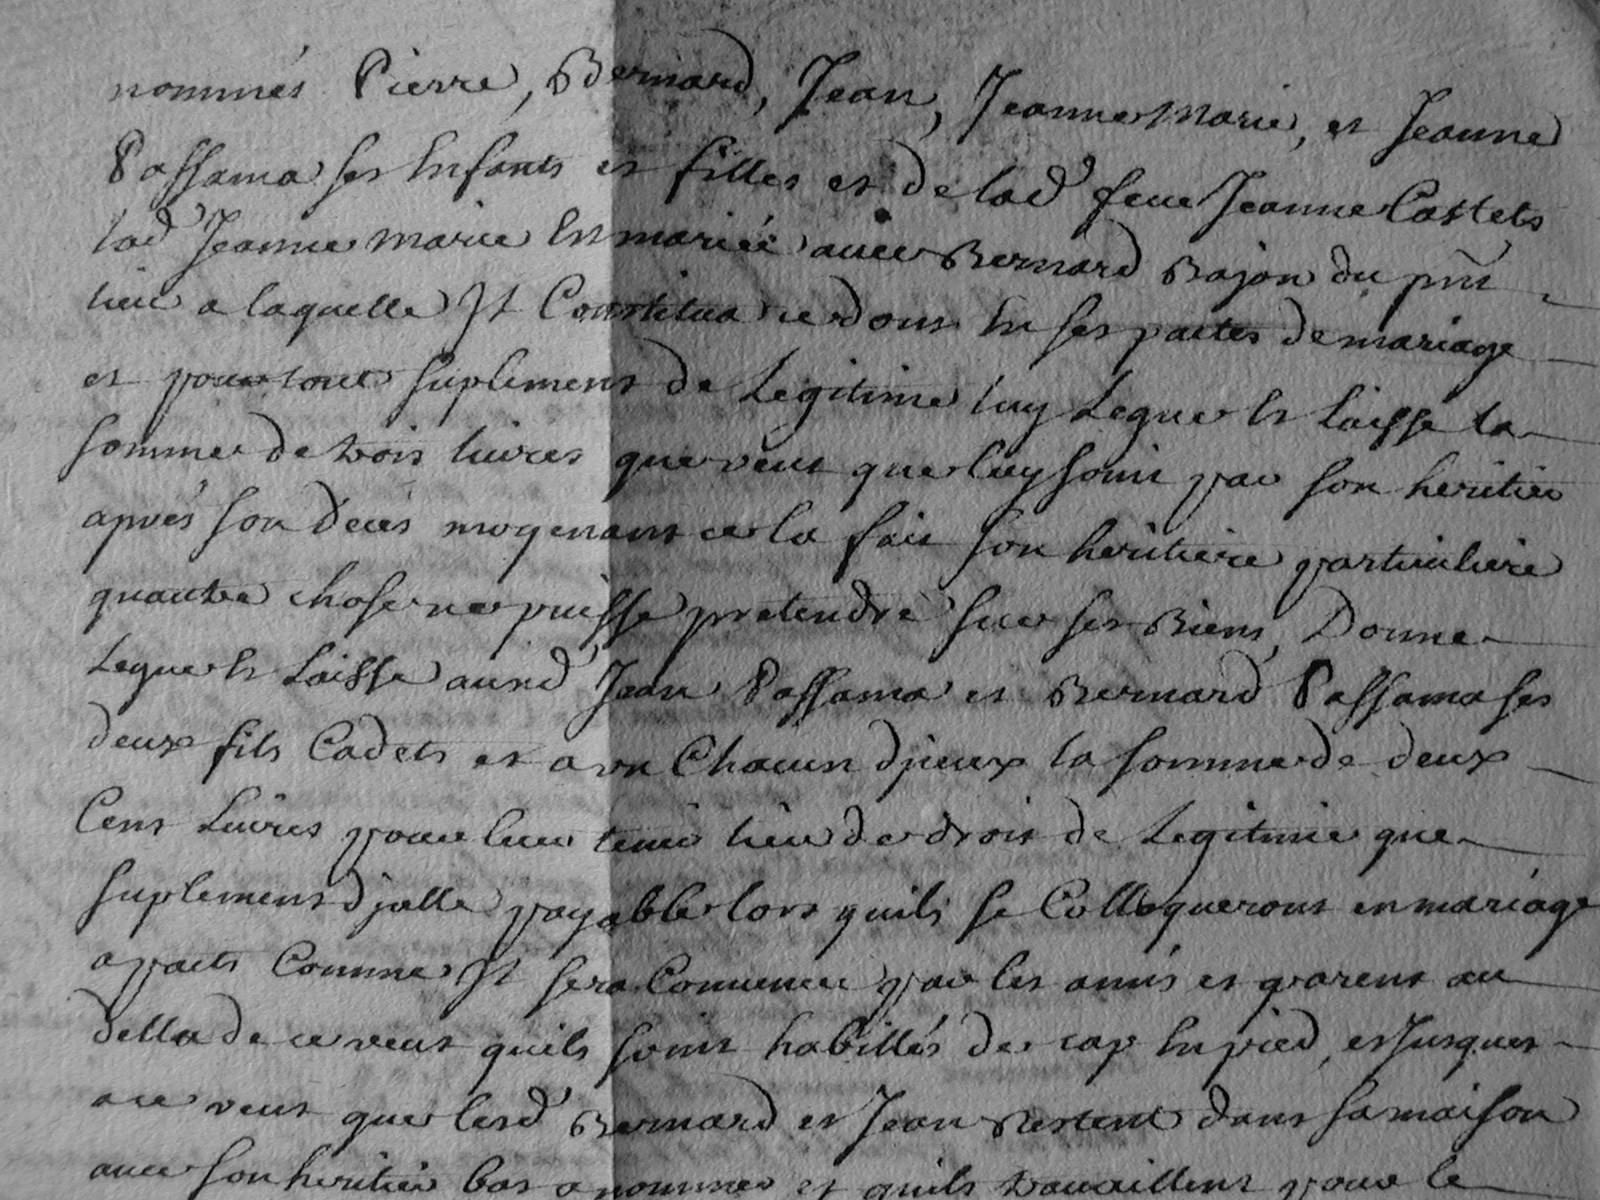 nommés Pierre, Bernard, Jean, Jeanne Marie, et Jeanne
Passama ses Enfants et filles et de lad feue Jeanne Castets
lad Jeanne marie Enmariée avec Bernard Bajon du pnt
lieu a laquelle Jl Constitua ce dont En ses pactes de mariage
et pour tout suplement de Legitime luy Legue Et laisse la
somme de trois livres que veut que luy soint par son heritier
après son décès moyenant ce la fait son heritiere particuliere
quautre chose ne puisse pretendre sur ses Biens, Donne
Legue Et Laisse ausd Jean Passama et Bernard Passama ses
deux fils Cadets et a vn Chacun djceux la somme de deux
Cens Livres pour leur tenir lieu de droit de Legitime que
suplement djcelle payable lors quils se Colloqueront en mariage
a pacts Comme Jl sera Convenu par les amis et parens au
della de ce veut quils soint habillés de cap En pied, et Jusques
a ce veut que lesd Bernard et Jean Restent dans sa maison
avec son heritier bas a nommer et quils travaillent pour le